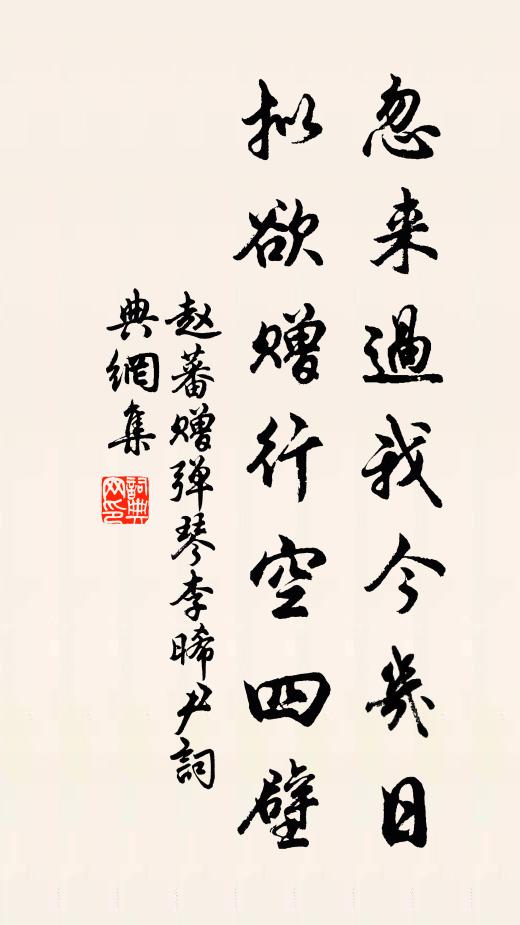 忽来過我今幾日
拟欲赠行空四壁
赵蕃赠弹琴李晞尹詞
典網集
詞典网印